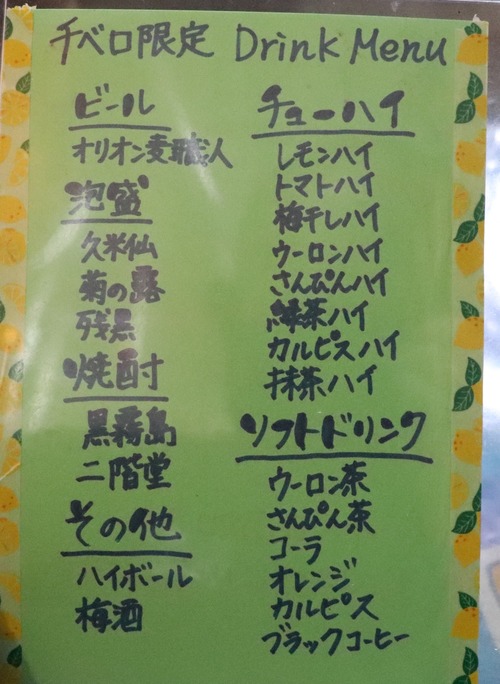 千ベロ限定 Drink Menu
ビール
オリオン麦職人
泡盛
久米仙
菊の露
残黒
焼酎
黒霧島
二階堂
その他
ハイボール
梅酒
チューハイ
レモンハイ
トマトハイ
梅干しハイ
ウーロンハイ
さんぴんハイ
緑茶ハイ
カルピスハイ
抹茶ハイ
ソフトドリンク
ウーロン茶
さんぴん茶
コーラ
オレンジ
カルピス
ブラックコーヒー